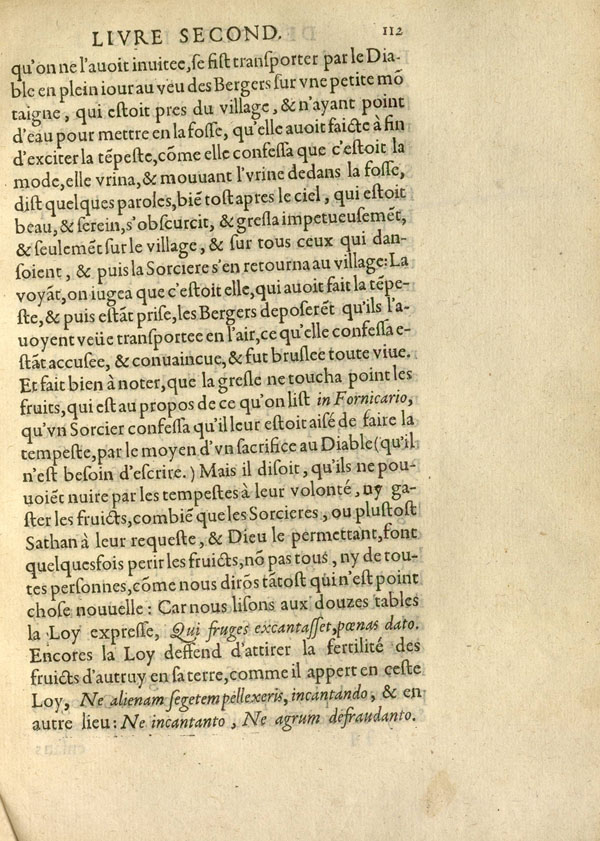 LIVRE SECOND. 112
qu'on ne l'auoit inuitee, se fist transporter par le Dia-
ble en plein iour au veu des Bergers sur vne petite mõ
taigne, qui estoit pres du village, & n'ayant point
d'eau pour mettre en la fosse, qu'elle auoit faicte à fin
d'exciter la tẽpeste, cõme elle confessa que c'estoit la
mode, elle vrina, & mouuant l'vrine dedans la fosse,
dist quelques paroles, biẽ tost apres le ciel, qui estoit
beau, & serein, s'obscurcit, & gresla impetueusemẽt,
& seulemẽt sur le village, & sur tous ceux qui dan-
soient, & puis la Sorciere s'en retourna au village: La
voyãt, on iugea que c'estoit elle, qui auoit fait la tẽpe-
ste, & puis estãt prise, les Bergers deposerẽt qu'ils l'a-
uoyent veüe transportee en l'air, ce qu'elle confessa e-
stãt accusee, & conuaincue, & fut bruslee toute viue.
Et fait bien à noter, que la gresle ne toucha point les
fruits, qui est au propos de ce qu'on list in Fornicario,
qu'vn Sorcier confessa qu'il leur estoit aisé de faire la
tempeste, par le moyen d'vn sacrifice au Diable (qu'il
n'est besoin d'escrire.) Mais il disoit, qu'ils ne pou-
uoiẽt nuire par les tempestes à leur volonté, ny ga-
ster les fruicts, combiẽ que les Sorcieres, ou plustost
Sathan à leur requeste, & Dieu le permettant, font
quelquesfois perir les fruicts, nõ pas tous, ny de tou-
tes personnes, cõme nous dirõs tãtost qui n'est point
chose nouuelle: Car nous lisons aux douzes tables
la Loy expresse, Qui fruges excantasset, pœnas dato.
Encores la Loy deffend d'attirer la fertilité des
fruicts d'autruy en sa terre, comme il appert en ceste
Loy, Ne alienam segetem pellexeris, incantando, & en
autre lieu: Ne incantanto, Ne agrum defraudanto.